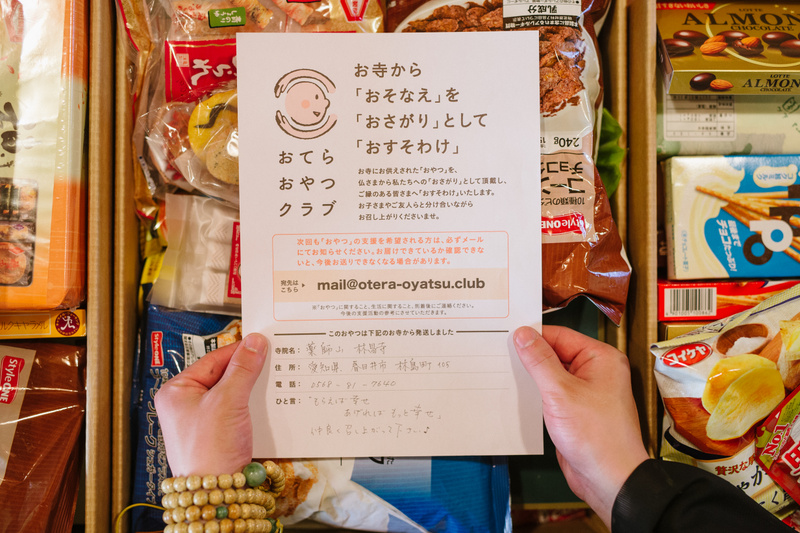 お寺から
「おそなえ」を
「おさがり」として
「おすそわけ」
おてら
おやつ
クラブ
お寺にお供えされた「おやつ」を、
仏さまから私たちへの「おさがり」として頂戴し、
ご縁のある皆さまへ「おすそわけ」いたします。
お子さまやご友人らと分け合いながら
お召し上がりくださいませ。
次回も「おやつ」の支援を希望される方は、必ずメール
にてお知らせください。お届けできているか確認できな
いと、今後お送りできなくなる場合があります。
宛先は
こちら
mail@otera-oyatsu.club
※「おやつ」に関すること、生活に関すること、到着後にご連絡ください。
今後の支援活動の参考にさせていただきます。
このおやつは下記のお寺から発送しました
寺院名： 薬師山 林昌寺
住 所： 愛知県 春日井市 林島町 105
電 話： 0568-91-7640
ひと言： 「もらえば幸せ
あげればもっと幸せ」
仲良く召し上がって下さい♪
乳成分
240g
チョコ
StyleONE
LOTTE
ALMOND
CHOCOLATE
LOTTE
ALMON
CHOCOLATE
チョコたっぷり!
StyleONE
StyleONE
贅沢な